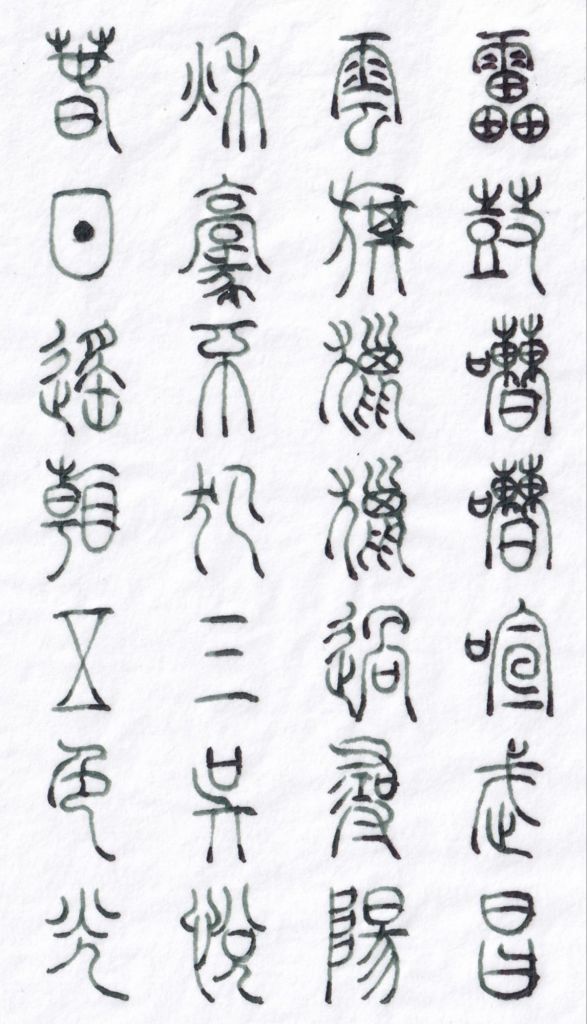 雷鼓嘈嘈喧武昌
雲旗獵獵過尋陽
秋毫不犯三吳悅
春日遙看五色光